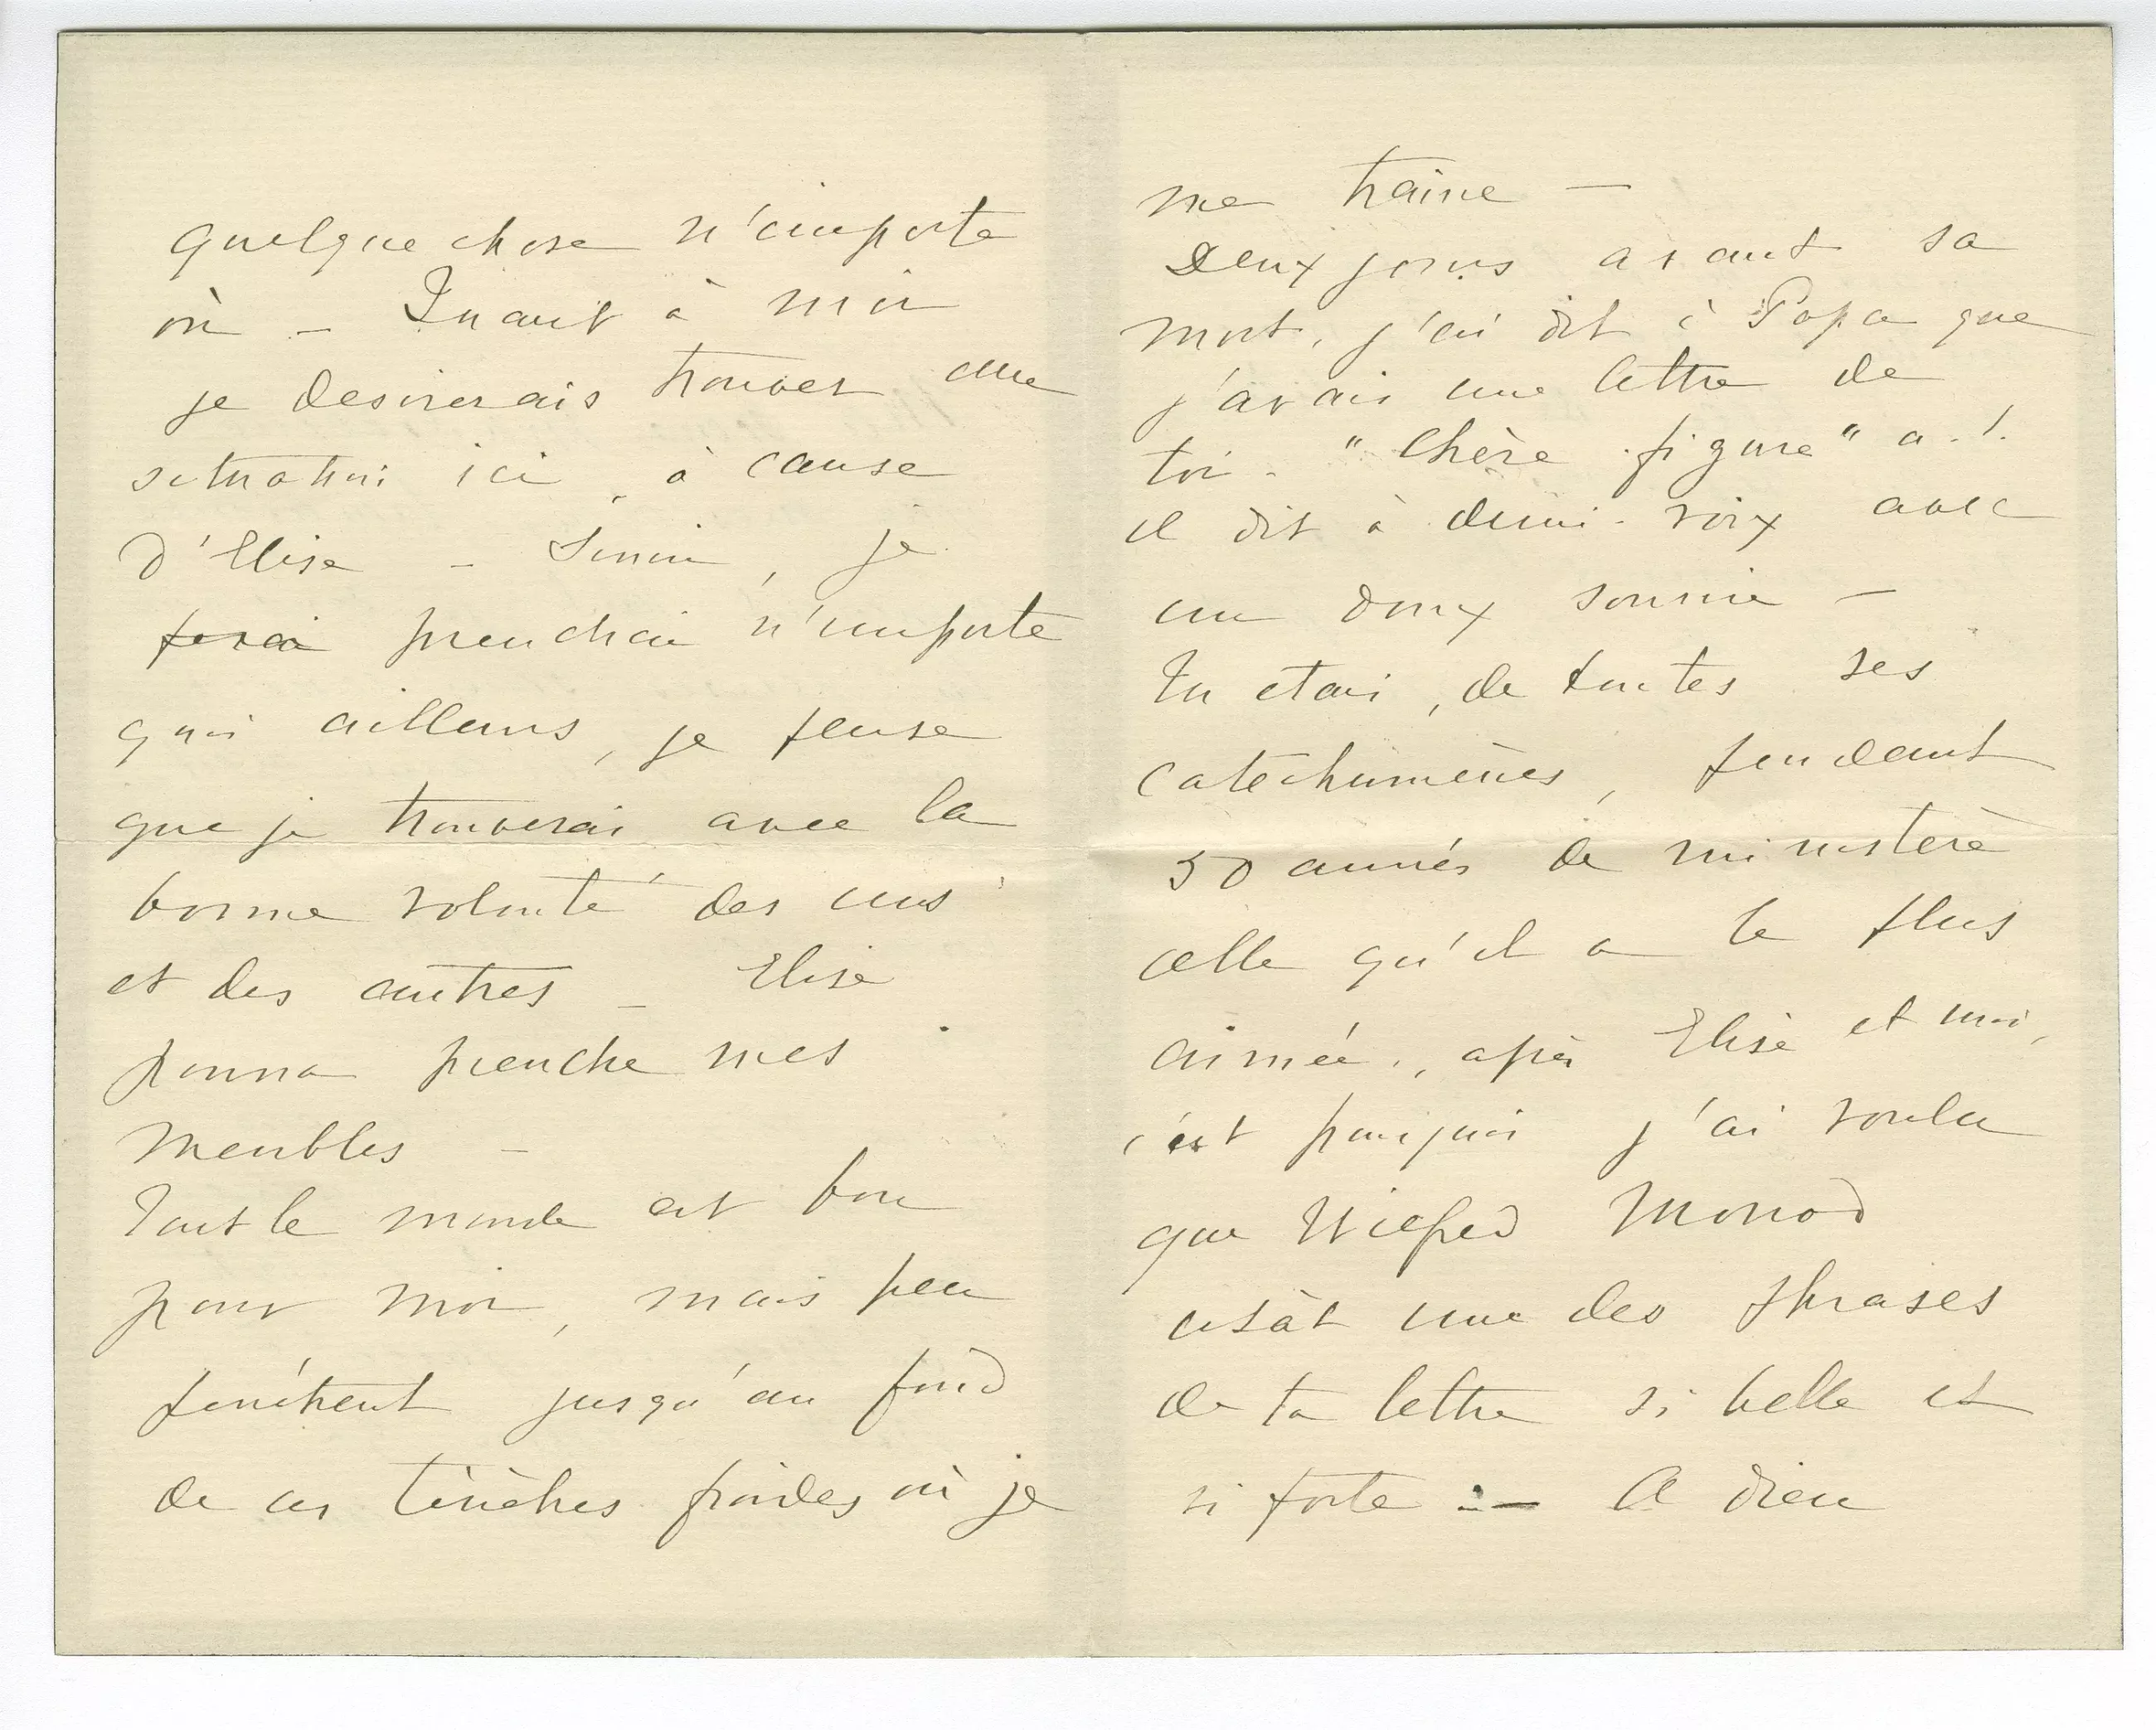 quelque chose n'importe
où – Quant à moi
je desirerais trouver une
situation ici, à cause
d'Elise – Sinon, je
ferai prendrai n'importe
quoi ailleurs, je pense
que je trouverai avec la
bonne volonté des uns
et des autres – Elise
pourra prendre mes
meubles –
Tout le monde est bon
pour moi, mais peu
pénètrent jusqu'au fond
de ces ténèbres froides où je
me traine –
Deux jours avant sa
mort, j'ai dit à Papa que
j'avais une lettre de
toi – "Chère figure" a-t-
il dit à demi-voix avec
un doux sourire –
Tu étais, de toutes ses
catéchumènes, pendant
50 années de ministère
celle qu'il a le plus
aimée, après Elise et moi,
c'est pourquoi j'ai voulu
que Wilfred Monod
usât une des phrases
de ta lettre si belle et
si forte – A dieu